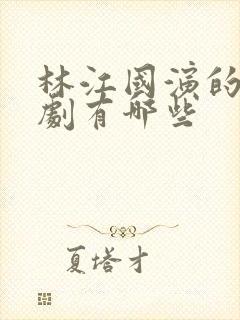 林江國演的
劇有哪些
夏塔才